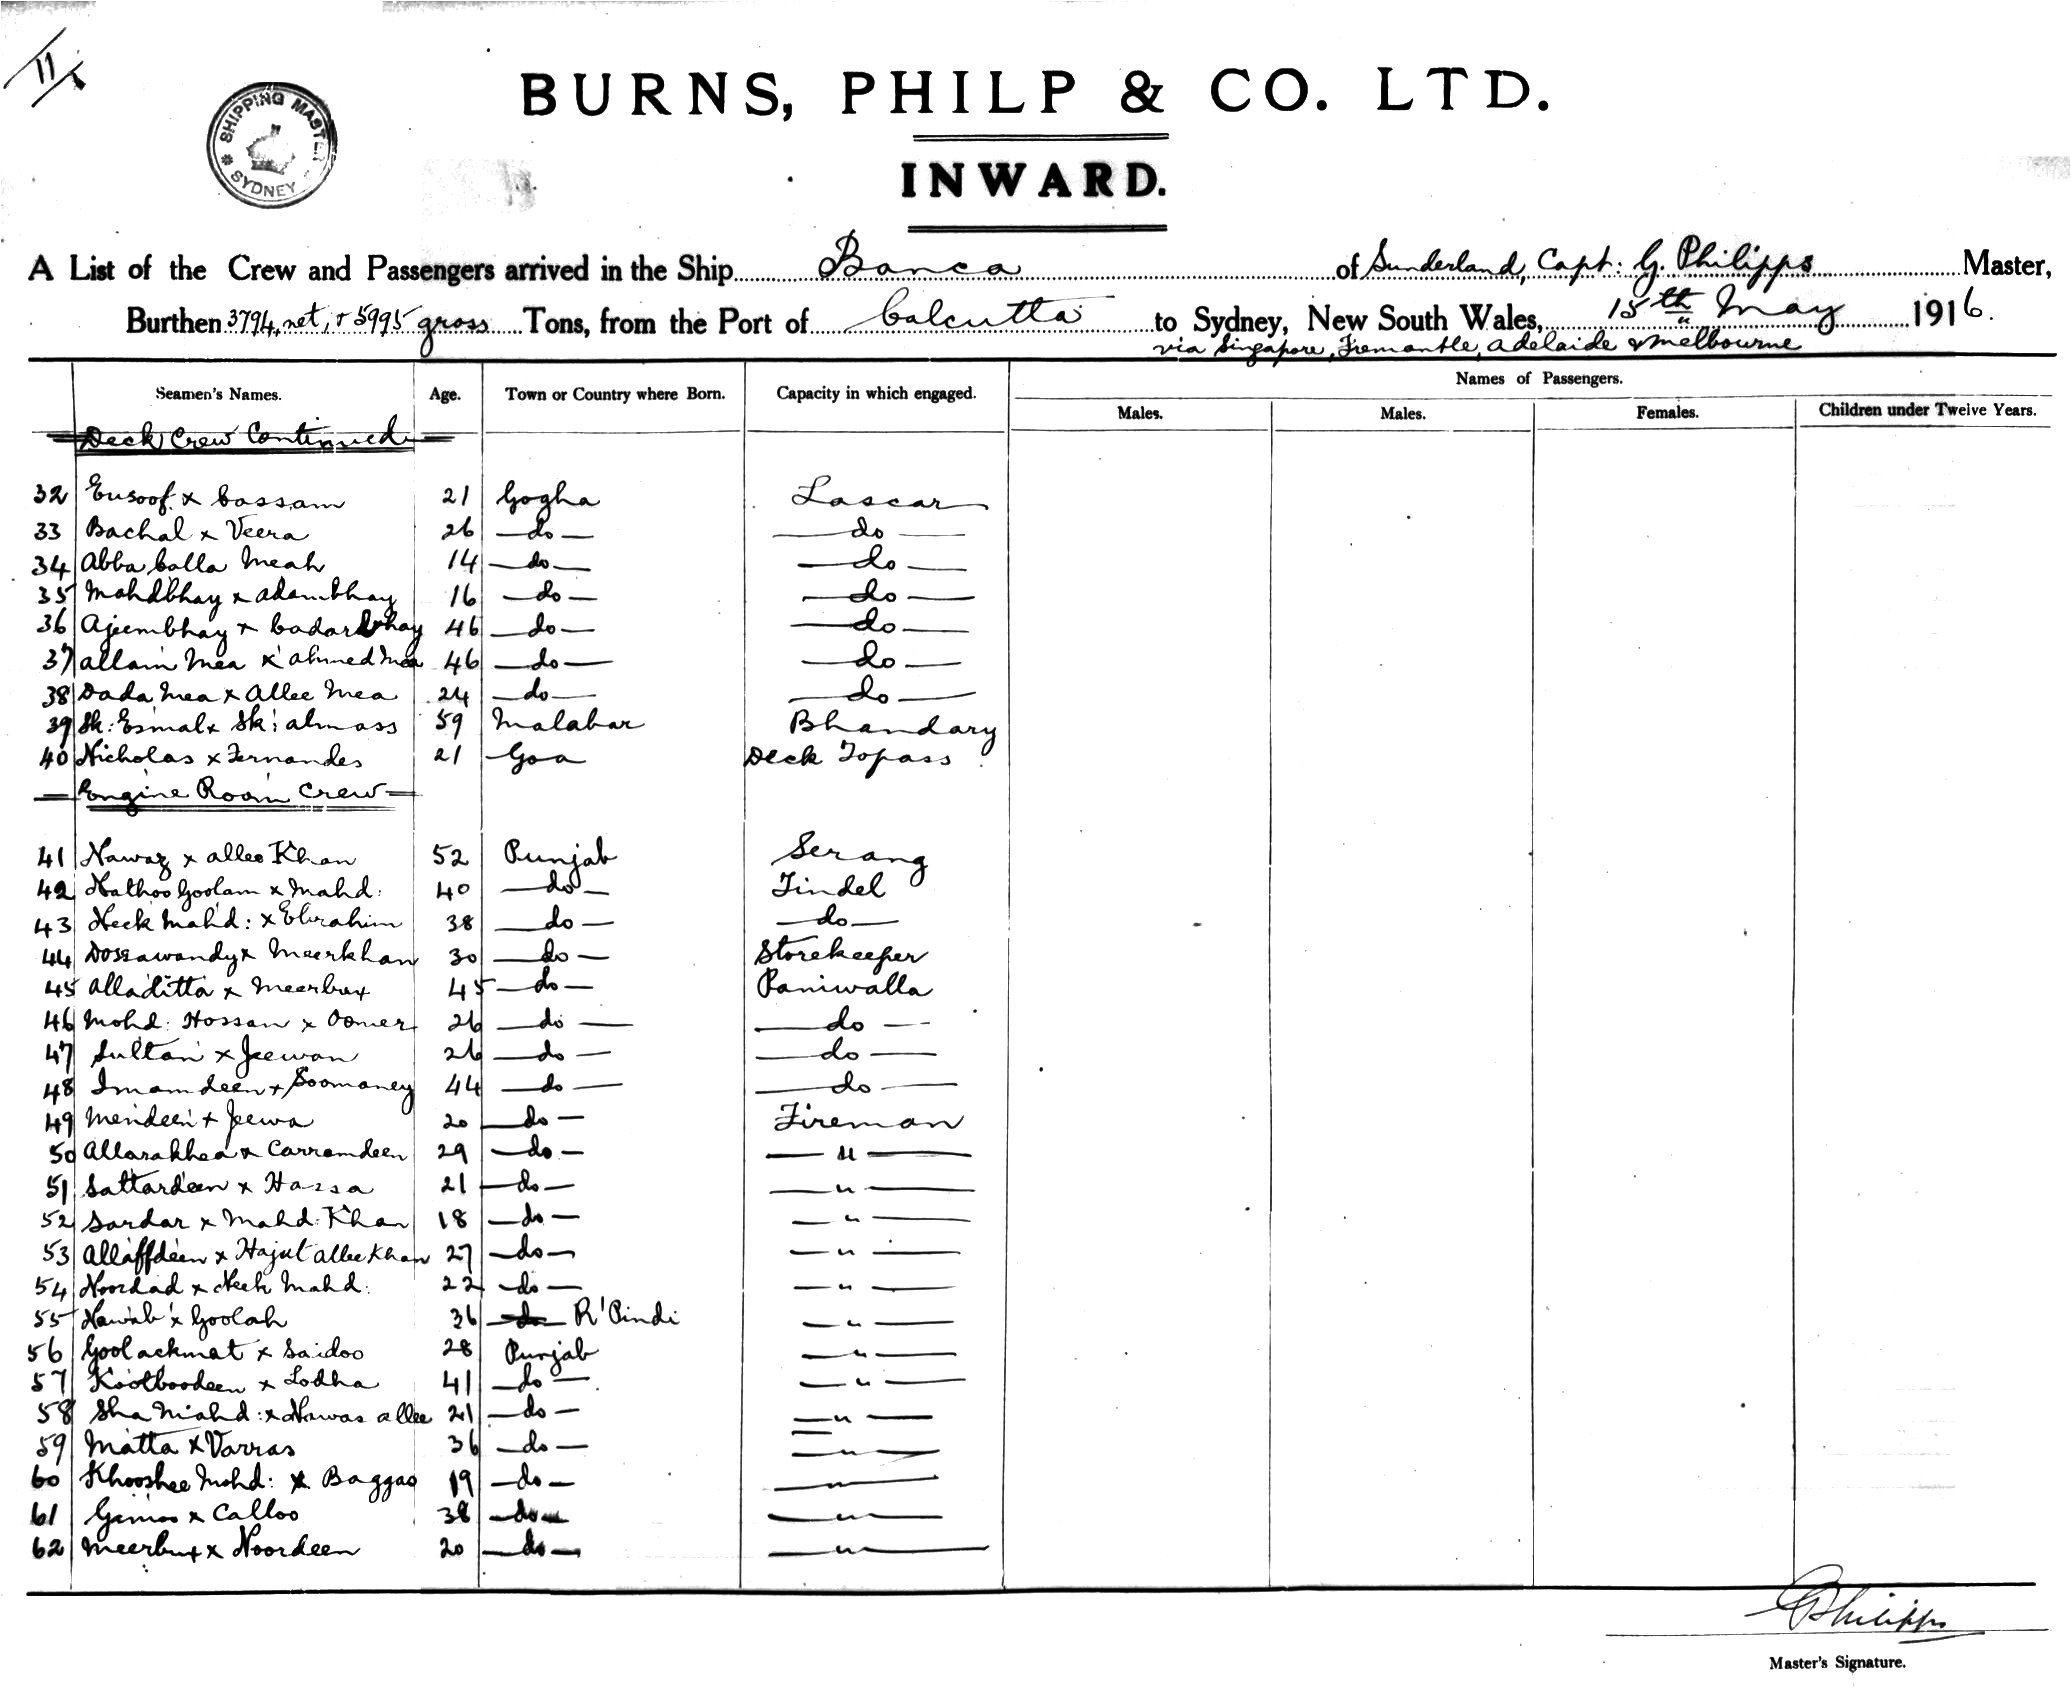 II
SHIPPING MASTER
SYDNEY
BURNS, PHILP & CO. LTD.
INWARD.
A List of the Crew and Passengers arrived in the Ship Banca of Sunderland, Capt: G. Philipps Master,
Burthen 3794, net, & 5995 gross Tons, from the Port of Calcutta to Sydney, New South Wales, 15th May 1916.
via Singapore, Fremantle, Adelaide & Melbourne
Seamen's Names. Age. Town or Country where Born. Capacity in which engaged. Names of Passengers.
Males. Males. Females. Children under Twelve Years.
Deck Crew Continued
32 Eusoof x Cassam 21 Gogha Lascar
33 Bachal x Veera 26 — do — — do —
34 Abba Calla Meah 14 — do — — do —
35 Mahdbhay x Adambhay 16 — do — — do —
36 Ajeembhay x Cadarbhay 46 — do — — do —
37 Allam Mea x Ahmed Mea 46 — do — — do —
38 Dada Mea x Allee Mea 24 — do — — do —
39 Sk: Esmal x Sk: Almass 59 Malabar Bhandary
40 Nicholas x Fernandes 21 Goa Deck Topass
— Engine Room Crew —
41 Nawaz x Allee Khan 52 Punjab Serang
42 Nathoo Goolam x Mahd: 40 — do — Tindel
43 Neck Mahd: x Ebrahim 38 — do — — do —
44 Dossawandy x Meerkhan 30 — do — Storekeeper
45 Alladitta x Meerbux 45 — do — Paniwalla
46 Mohd: Hossan x Oomer 26 — do — — do —
47 Sultan x Jeewan 26 — do — — do —
48 Imamdeen x Soomaney 44 — do — — do —
49 Mendeen x Jeewa 20 — do — Fireman
50 Allarakhea x Carramdeen 29 — do — — " —
51 Sattardeen x Hassa 21 — do — — " —
52 Sardar x Mahd: Khan 18 — do — — " —
53 Allaffdeen x Hajut Allee Khan 27 — do — — " —
54 Noordad x Neek Mahd: 22 — do — — " —
55 Nawab x Goolah 36 — do — R'Pindi — " —
56 Goolackmat x Saidoo 28 Punjab — " —
57 Kootboodeen x Lodha 41 — do — — " —
58 Sha Mahd: x Nawas Allee 21 — do — — " —
59 Matta x Varras 36 — do — — " —
60 Khooshee Mohd: x Baggao 19 — do — — " —
61 Gamoo x Calloo 38 — do — — " —
62 Meerbux x Noordeen 20 — do — — " —
G Philipps
Master's Signature.